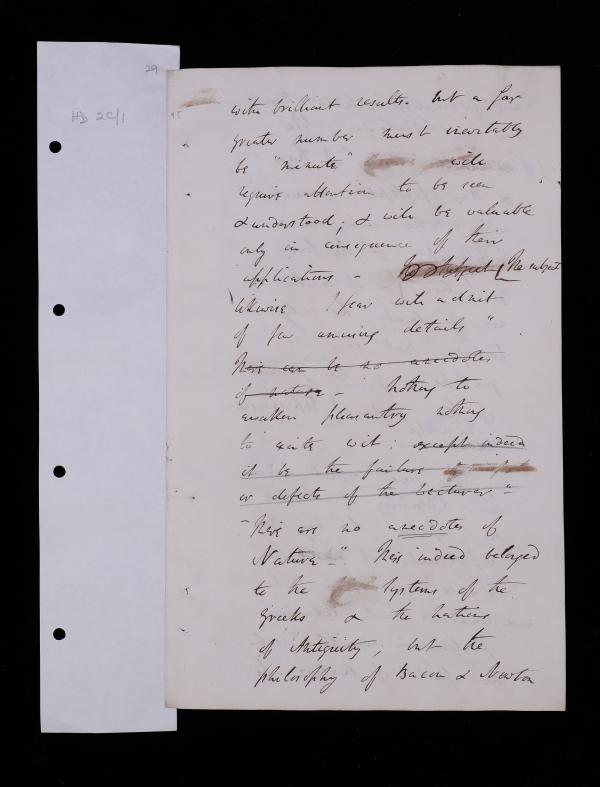 29
HD 2C/1
with brilliant results. but a far
greater number must inevitably
be "minute" will
require attention to be seen
& understood; & will be valuable
only in consequence of their
applications - The subject
likewise I fear will admit
of few amusing details"
There can be no anecdotes
of nature - Nothing to
awaken pleasantry nothing
to excite wit; except indeed
it be the failure
or defects of the Lecturer"-
"There are no anecdotes of
Nature -" These indeed belonged
to the Systems of the
Greeks & the nations
of Antiquity, but the
philosophy of Bacon & Newton